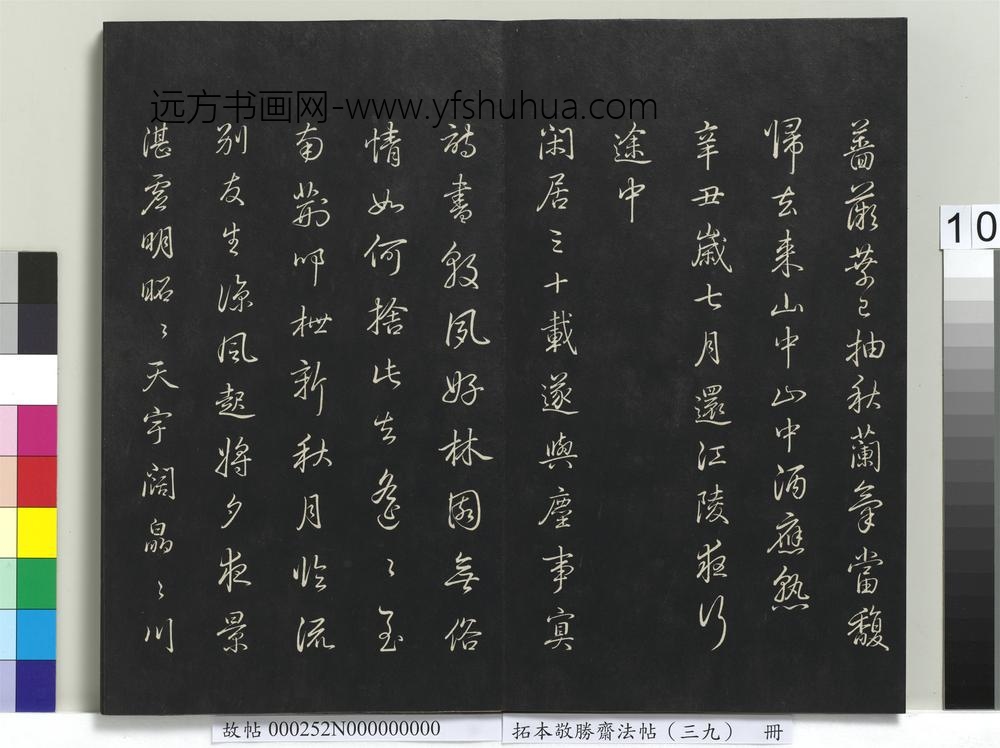 远方书画网-www.yfshuhua.com
薔薇葉已抽秋蘭氣當馥
歸去来山中山中酒應熟
辛丑歲七月還江陵夜行
途中
閑居三十載遂與塵事冥
詩書敦夙好林園無俗
情如何捨此去遙〻至
南荊叩枻新秋月臨流
別友生涼風起將夕夜景
湛虛明昭〻天宇闊皛〻川
10
故帖 000252N000000000
拓本敬勝齋法帖（三九） 冊